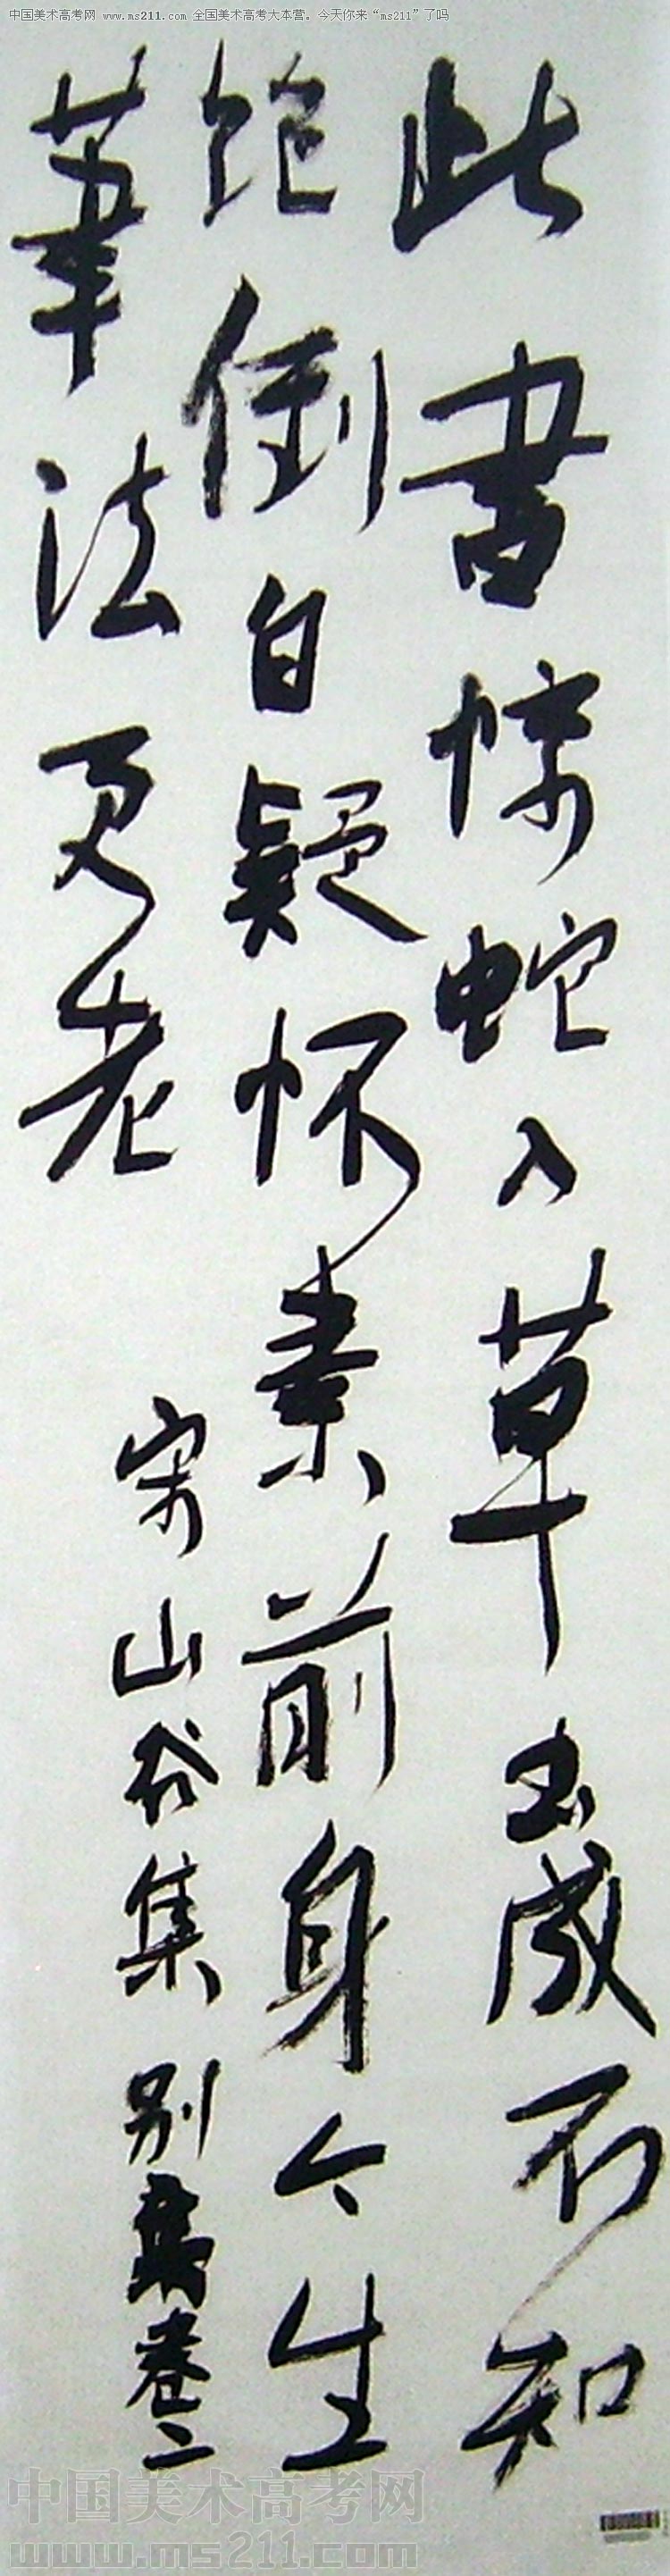 中国美术高考网 www.ms211.com 全国美术高考大本营。今天你来“ms211”了吗
此书惊蛇入草书成不知
绝倒自疑怀素前身今生
笔法更老
宋山谷集别集卷二
中国美术高考网
www.ms211.com